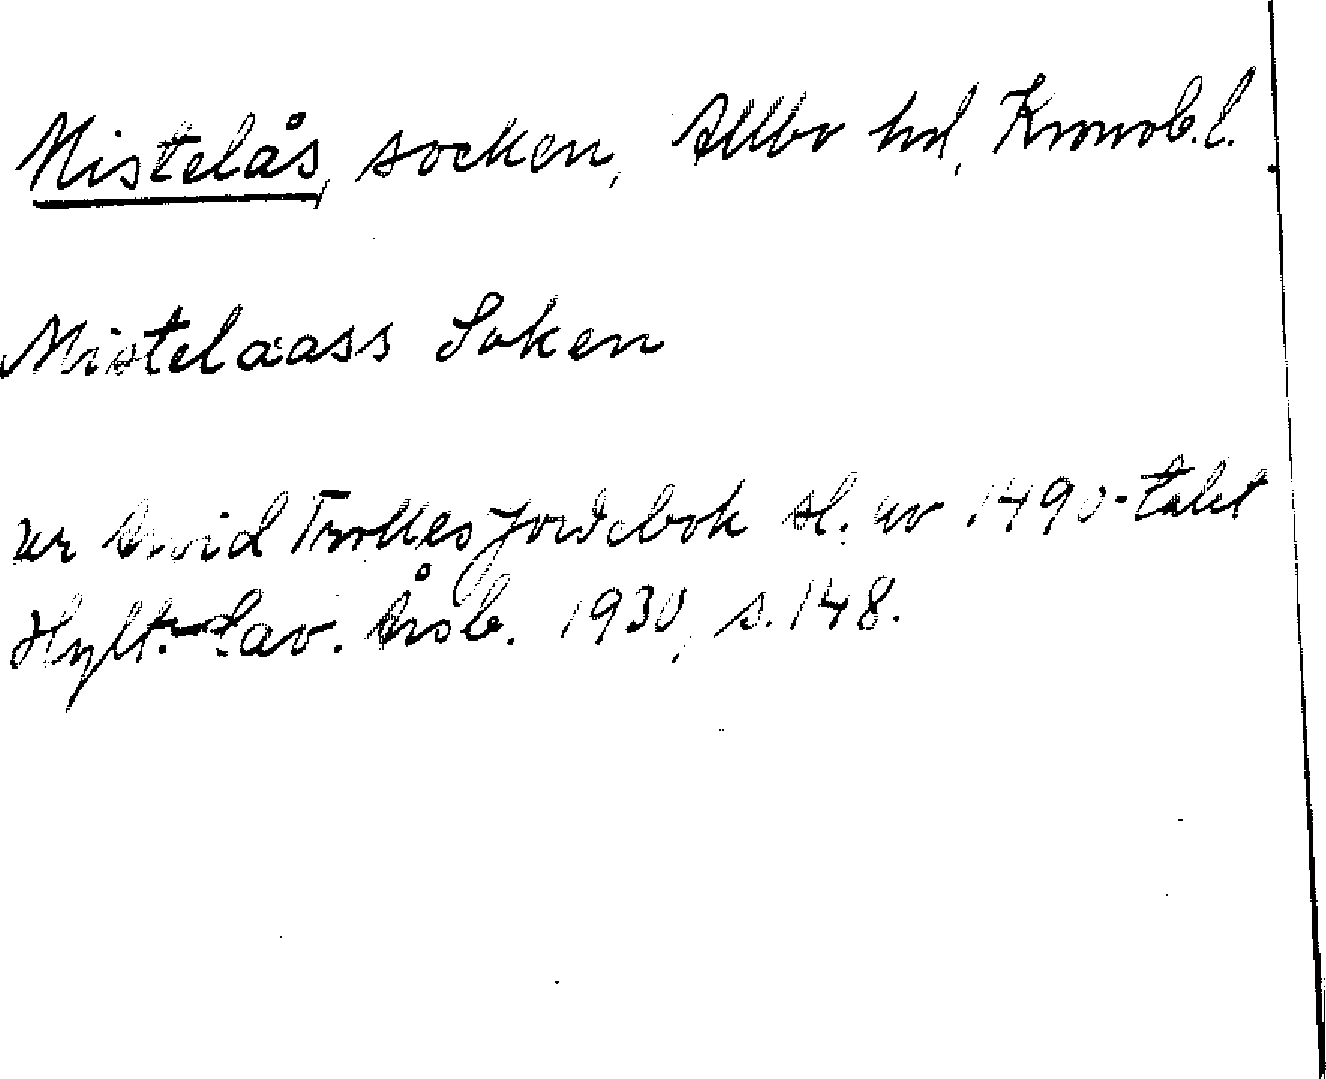 Mistelås, socken, Allbo hd, Kronob.l.
Mistelaass Soken
ur Arvid Trolles jordebok sl. av 1490-talet
Hylt.-Cav. Årsb. 1930, s. 148.